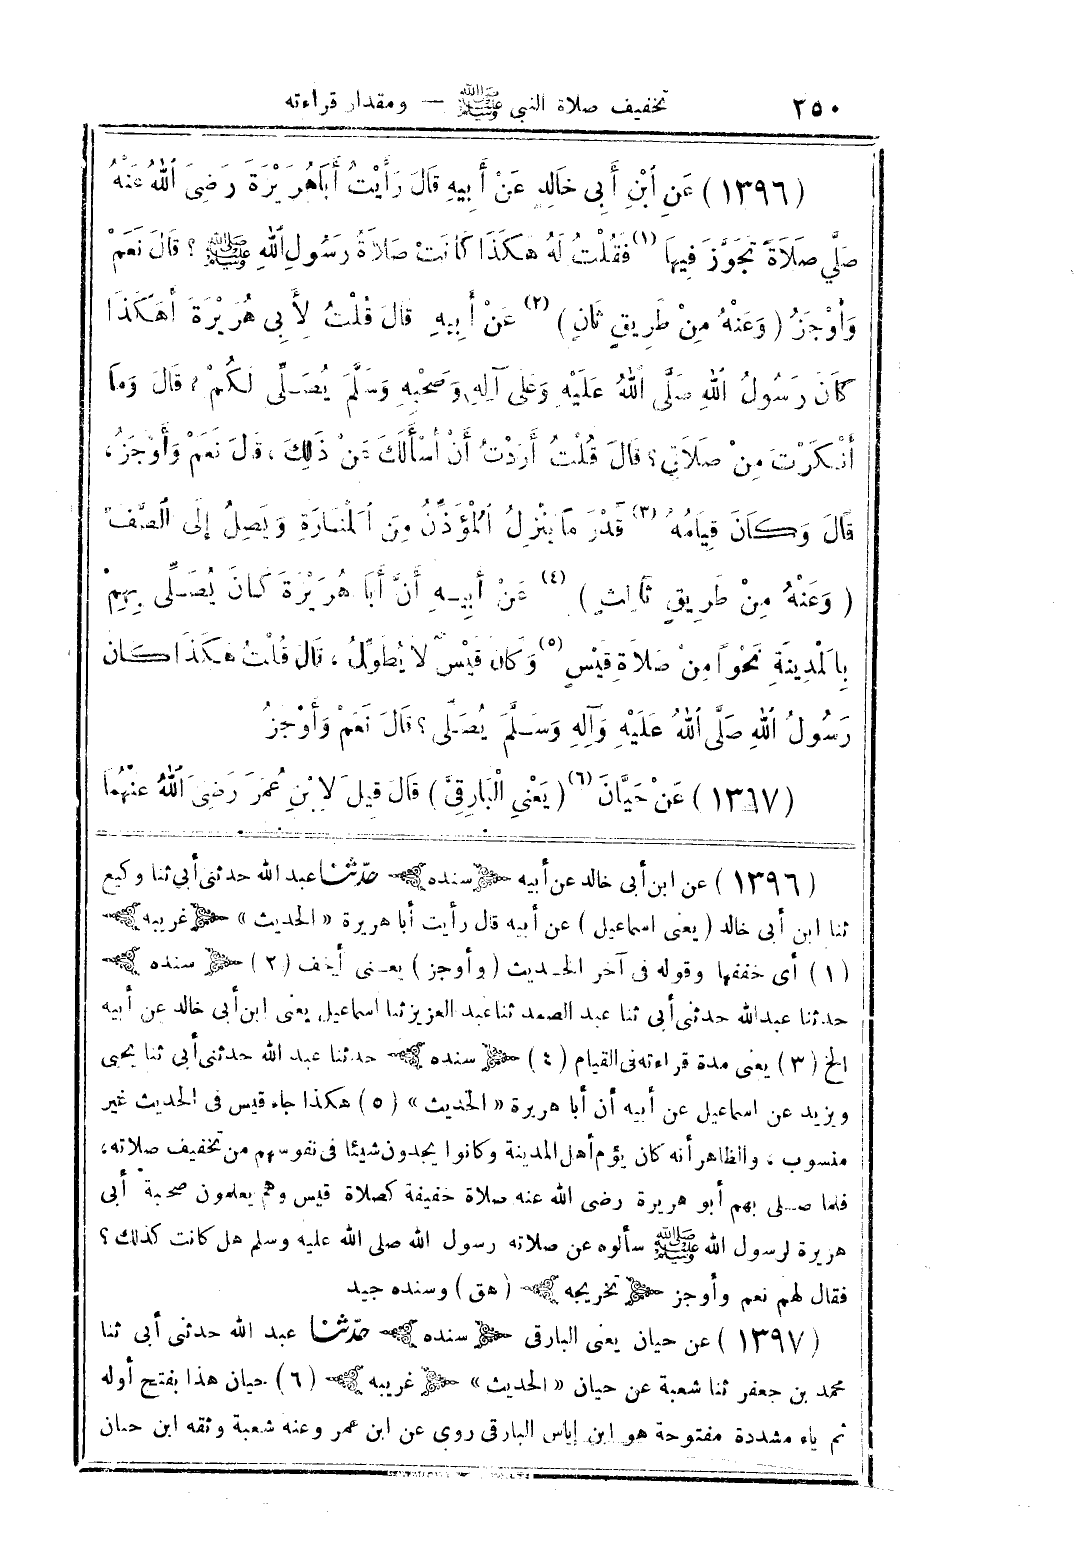 ٢٥٠ تخفيف صلاة النبي ﷺ — ومقدار قراءته
(١٣٩٦) عَنِ ٱبْنِ أَبِى خَالِدٍ عَنْ أَبِيهِ قَالَ رَأَيْتُ أَبَاهُرَيْرَةَ رَضِىَ ٱللهُ عَنْهُ
صَلَّي صَلَاَةً تَجَوَّزَ فِيهَا (١) فَقُلْتُ لَهُ هٰكَذَا كَانَتْ صَلاَةُ رَسُولِ ٱللهِ ﷺ ؟ قَالَ نَعَمْ
وَأَوْجَزُ (وَعَنْهُ مِنْ طَرِيقٍ ثَانٍ) (٢) عَنْ أَبِيهِ قَالَ قُلْتُ لِأَبِى هُرَيْرَةَ أَهٰكَذَا
كَاَنَ رَسُولُ ٱللهِ صَلَّى ٱللهُ عَلَيْهِ وَعَلَى آلِهِ وَصَحْبِهِ وَسَلَّمَ يُصَلِّى لَكُمْ ؟ قَالَ وَمَا
أَنْكَرْتَ مِنْ صَلَاتِي ؟ قَالَ قُلْتُ أَرَدْتُ أَنْ أَسْأَلَكَ عَنْ ذٰلِكَ ، قَالَ نَعَمْ وَأَوْجَزُ ،
قَالَ وَكَاَنَ قِيَامُهُ (٣) قَدْرَ مَا يَنْزِلُ ٱلْمُؤَذِّنُ مِنَ ٱلْمَنَارَةِ وَيَصِلُ إِلَى ٱلصَّفِّ
(وَعَنْهُ مِنْ طَرِيقٍ ثَالِثٍ) (٤) عَنْ أَبِيهِ أَنَّ أَبَا هُرَيْرَةَ كَانَ يُصَلِّى بِهِمْ
بِالْمَدِينَةِ نَحْوًا مِنْ صَلَاةِ قَيْسٍ (٥) وَكَانَ قَيْسٌ لَا يُطَوِّلُ ، قَالَ قُلْتُ هٰكَذَا كَانَ
رَسُولُ ٱللهِ صَلَّى ٱللهُ عَلَيْهِ وَآلِهِ وَسَلَّمَ يُصَلِّى ؟ قَالَ نَعَمْ وَأَوْجَزُ
(١٣٩٧) عَنْ حَيَّانَ (٦) (يَعْنِى الْبَارِقِىَّ) قَالَ قِيلَ لِابْنِ عُمَرَ رَضِىَ ٱللهُ عَنْهُمَا
(١٣٩٦) عن ابن أبى خالد عن أبيه سنده حدّثنا عبد الله حدثنى أبى ثنا وكيع
ثنا ابن أبى خالد (يعنى اسماعيل) عن أبيه قال رأيت أبا هريرة «الحديث» غريبه
(١) أى خففها وقوله فى آخر الحديث (وأوجز) يعنى أخف (٢) سنده
حدثنا عبدالله حدثنى أبى ثنا عبد الصمد ثنا عبد العزيز ثنا اسماعيل يعنى ابن أبى خالد عن أبيه
الخ (٣) يعنى مدة قراءته فى القيام (٤) سنده حدثنا عبد الله حدثنى أبى ثنا يحيى
ويزيد عن اسماعيل عن أبيه أن أبا هريرة «الحديث» (٥) هكذا جاء قيس فى الحديث غير
منسوب ، والظاهر أنه كان يؤم أهل المدينة وكانوا يجدون شيئا فى نفوسهم من تخفيف صلاته ،
فلما صلى بهم أبو هريرة رضى الله عنه صلاة خفيفة كصلاة قيس وهم يعلمون صحبة أبى
هريرة لرسول الله ﷺ سألوه عن صلاته رسول الله صلى الله عليه وسلم هل كانت كذلك ؟
فقال لهم نعم وأوجز تخريجه (هق) وسنده جيد
(١٣٩٧) عن حيان يعنى البارقى سنده حدّثنا عبد الله حدثنى أبى ثنا
محمد بن جعفر ثنا شعبة عن حيان «الحديث» غريبه (٦) حيان هذا بفتح أوله
ثم ياء مشددة مفتوحة هو ابن إياس البارقى روى عن ابن عمر وعنه شعبة وثقه ابن حبان